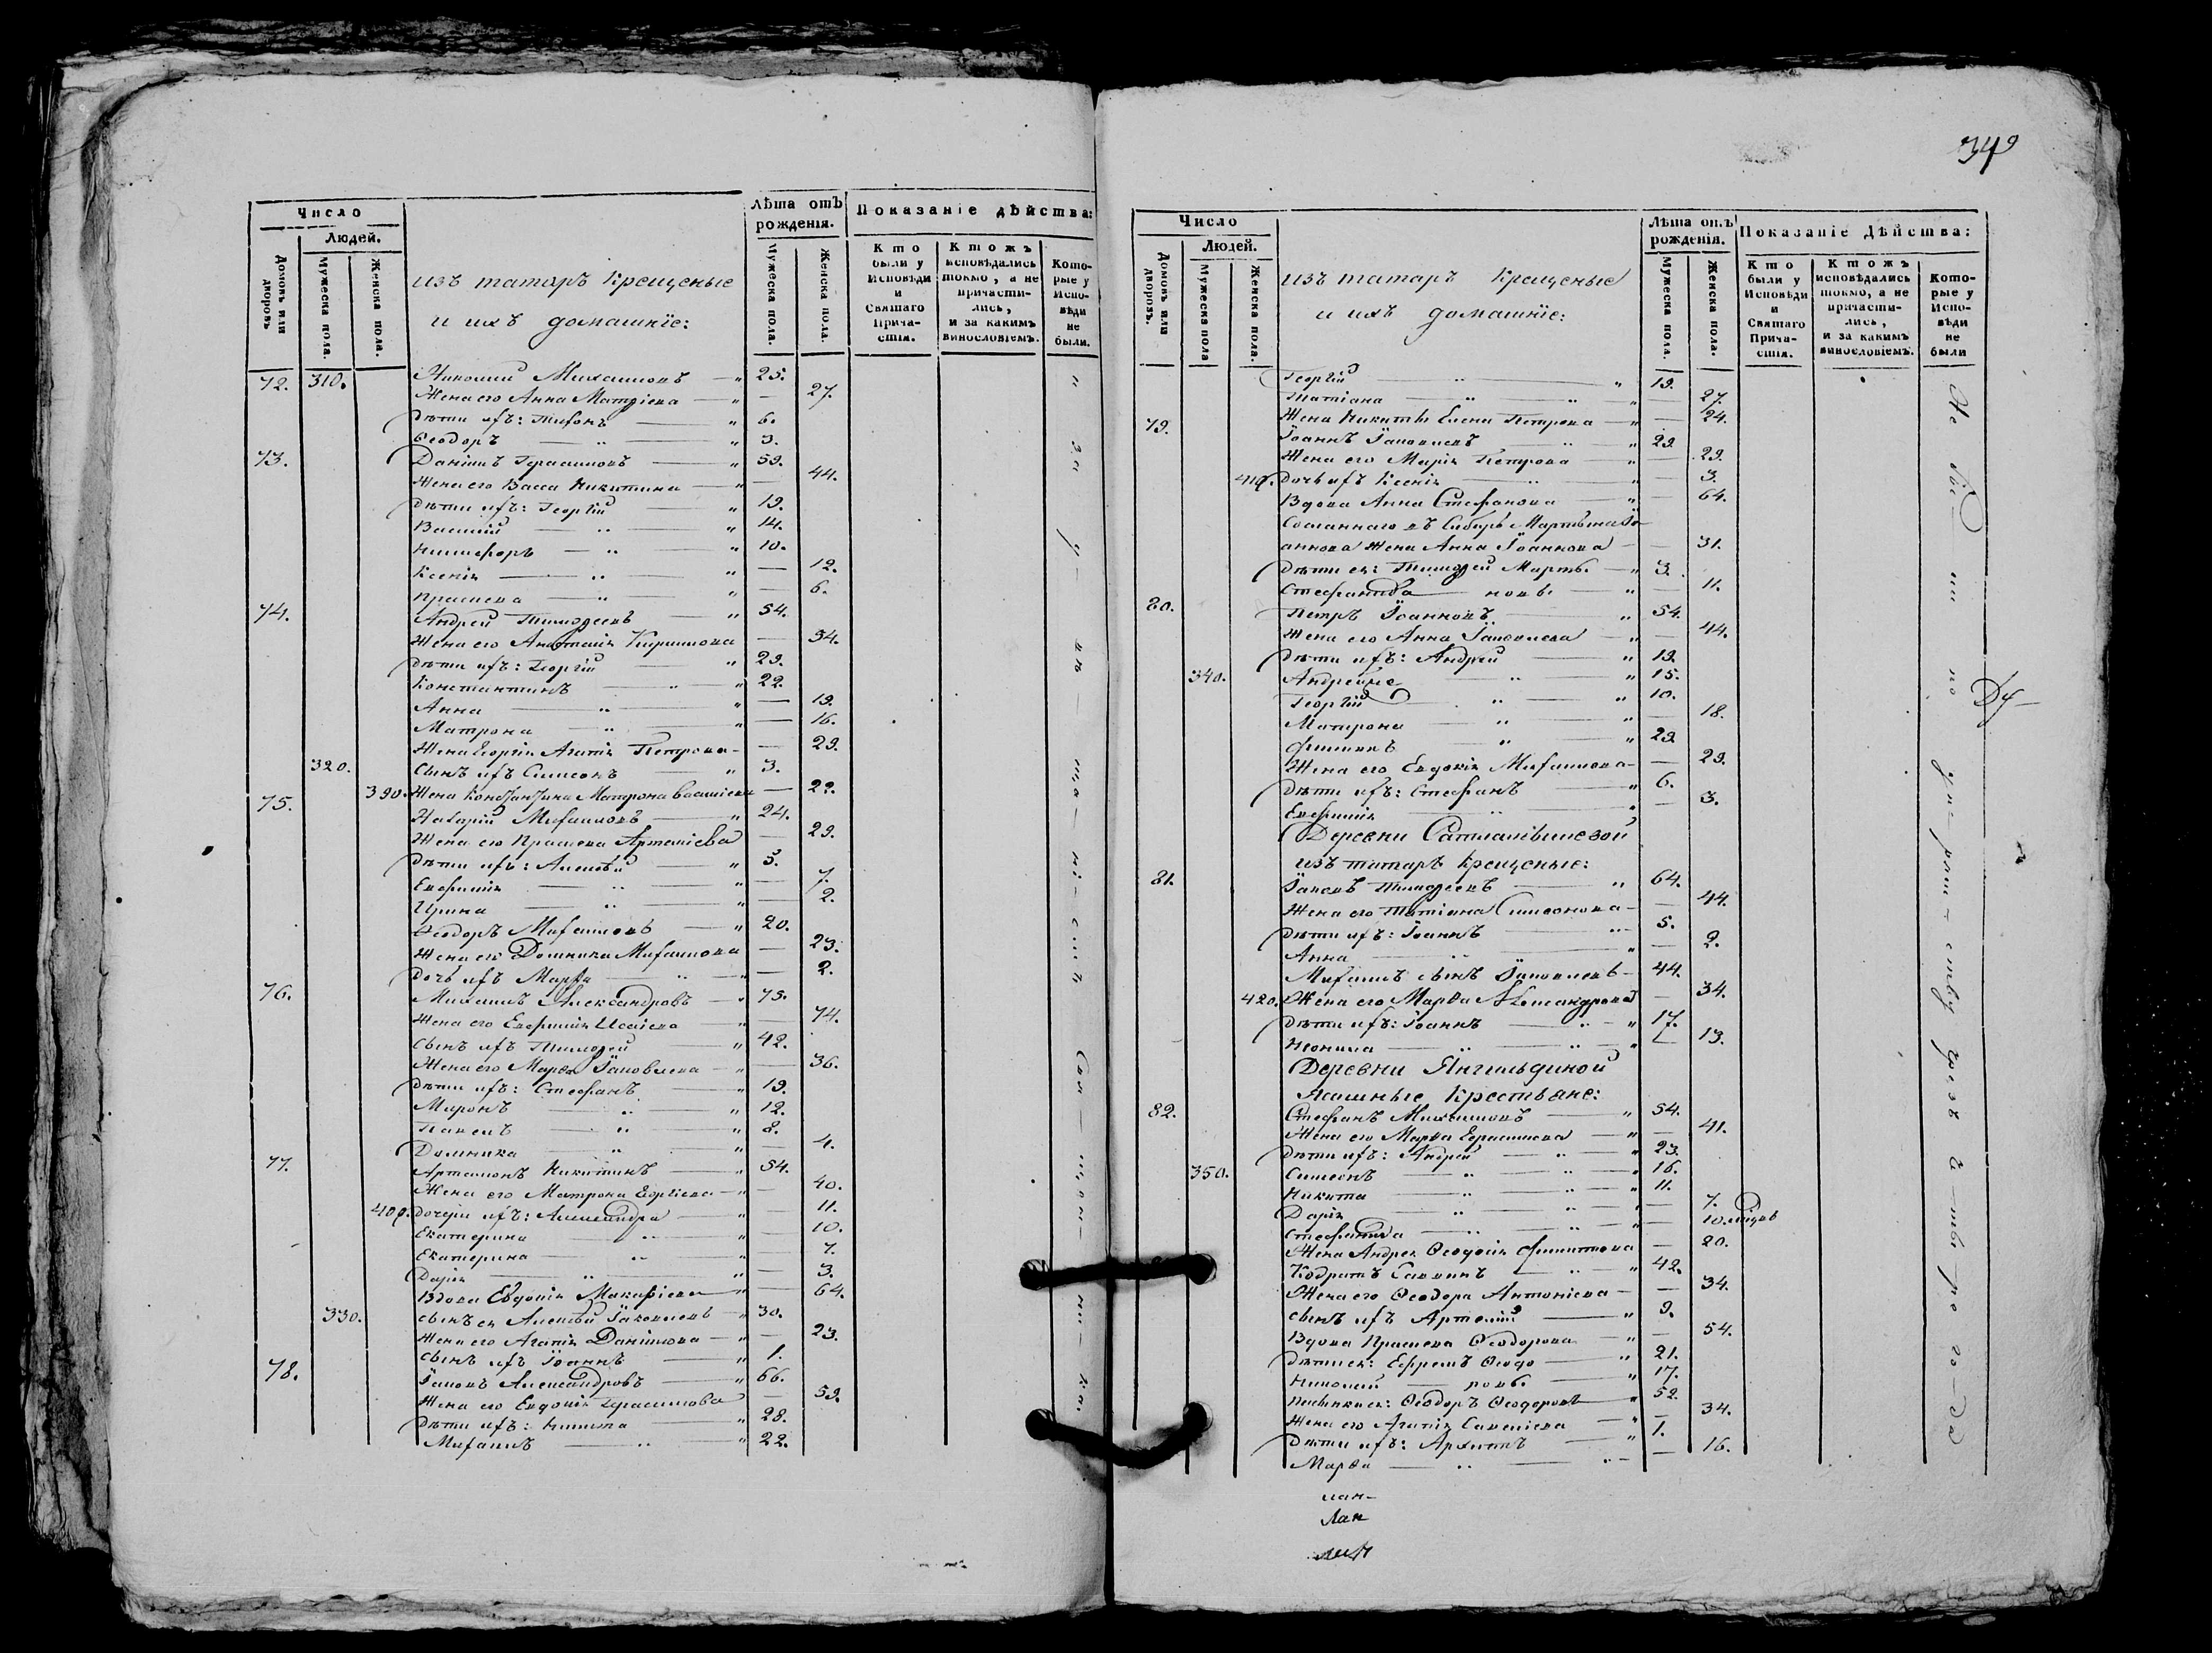 Число
Людей.
Домовъ или дворовъ.
Мужеска пола.
Женска пола.
изъ татаръ крещеные
и ихъ домашніе:
Лѣта отъ рожденія.
Мужеска пола.
Женска пола.
Показаніе дѣйства:
Кто были у Исповѣди и Святаго Причастія.
Ктожъ исповѣдались токмо, а не причастились, и за какимъ винословіемъ.
Которые у Исповѣди не были.
72. 310. Николай Михаиловъ 25.
Жена его Анна Матѳіева — 27.
Дѣти ихъ: Тихонъ 6.
Ѳеодоръ 3.
73. Даніилъ Герасимовъ 59.
Жена его Васса Никитина — 44.
Дѣти ихъ: Георгій 19.
Василій 14.
Никифоръ 10.
Ксенія — 12.
Прасковья — 6.
74. Андрей Тимоѳеевъ 54.
Жена его Анастасія Кириллова — 34.
Дѣти ихъ: Георгій 29.
Константинъ 22.
Анна — 19.
Матрона — 16.
Жена Георгія Агапія Петрова — 29.
320. Сынъ ихъ Симеонъ 3.
390. Жена Константина Матрона Василіева — 22.
75. Михаиловъ 24.
Жена его Прасковья Артеміева — 29.
Дѣти ихъ: Алексѣй 5.
Евфимія — 7.
Ирина — 2.
Ѳеодоръ Михаиловъ 20.
Жена его Домника Михаилова — 23.
Дочь ихъ Марѳа — 2.
76. Михаилъ Александровъ 75.
Жена его Евфимія Исаіева — 74.
Сынъ ихъ Тимоѳей 42.
Жена его Марѳа Іаковлева — 36.
Дѣти ихъ: Стефанъ 19.
Миронъ 12.
Павелъ 8.
Домника — 4.
77. Артамонъ Никитинъ 54.
Жена его Матрона Георгіева — 40.
400. Дочери ихъ: Александра — 11.
Екатерина — 10.
Екатерина — 7.
Дарія — 3.
Вдова Евдокія Макаріева — 64.
330. Сынъ ея Алексѣй Іаковлевъ 30.
Жена его Агапія Даніилова — 23.
Сынъ ихъ Іоаннъ 1.
78. Іаковъ Александровъ 66.
Жена его Евдокія Герасимова — 59.
Дѣти ихъ: Никита 28.
Михаилъ 22.
349
Число
Людей.
Домовъ или дворовъ.
Мужеска пола
Женска пола.
изъ татаръ крещеные
и ихъ домашніе:
Лѣта отъ рожденія.
Мужеска пола.
Женска пола.
Показаніе Дѣйства:
Кто были у Исповѣди и Святаго Причастія.
Ктожъ исповѣдались токмо, а не причастились, и за какимъ винословіемъ.
Которые у Исповѣди не были
Георгій 19.
Татіана 27.
Жена Никиты Елена Петрова — 24.
79. Іоаннъ Іаковлевъ 29.
Жена его Марія Петрова — 29.
410. Дочь ихъ Ксенія — 3.
Вдова Анна Стефанова — 64.
Сосланнаго въ Сибирь Мартына Іо-
аннова жена Анна Іоаннова — 31.
Дѣти ея: Тимоѳей Марты- 3.
Стефанида новы — 11.
80. Петръ Іоанновъ 54.
Жена его Анна Іаковлева — 44.
Дѣти ихъ: Андрей 19.
340. Андрей же 15.
Георгій 10.
Матрона — 18.
Филиппъ 29.
Жена его Евдокія Михаилова — 29.
Дѣти ихъ: Стефанъ 6.
Евфимія — 3.
Деревни
изъ татаръ крещеные:
81. Іаковъ Тимоѳеевъ 64.
Жена его Татіана Симеонова — 44.
Дѣти ихъ: Іоаннъ 5.
Анна — 2.
Михаилъ сынъ Іаковлевъ 44.
420. Жена его Марѳа Александрова — 34.
Дѣти ихъ: Іоаннъ 17.
Неонила — 13.
Деревни Янгильдиной
Ясашные крестьяне:
82. Стефанъ Михаиловъ 54.
Жена его Марѳа Герасимова — 41.
Дѣти ихъ: Андрей 23.
350. Симеонъ 16.
Никита 11.
Дарія — 7.
Стефанида — 10. мѣцовъ
Жена Андрея Ѳеодосія Филиппова — 20.
Кодратъ Саввинъ 42.
Жена его Ѳеодора Антоніева — 34.
Сынъ ихъ Артемій 9.
Вдова Прасковья Ѳеодорова — 54.
Дѣти ея: Ефремъ Ѳеодо- 21.
Николай ровы 17.
Ѳеодоръ Ѳеодоровъ 52.
Жена его Агапія Савеліева — 34.
Дѣти ихъ: Архипъ 1.
Марѳа — 16.